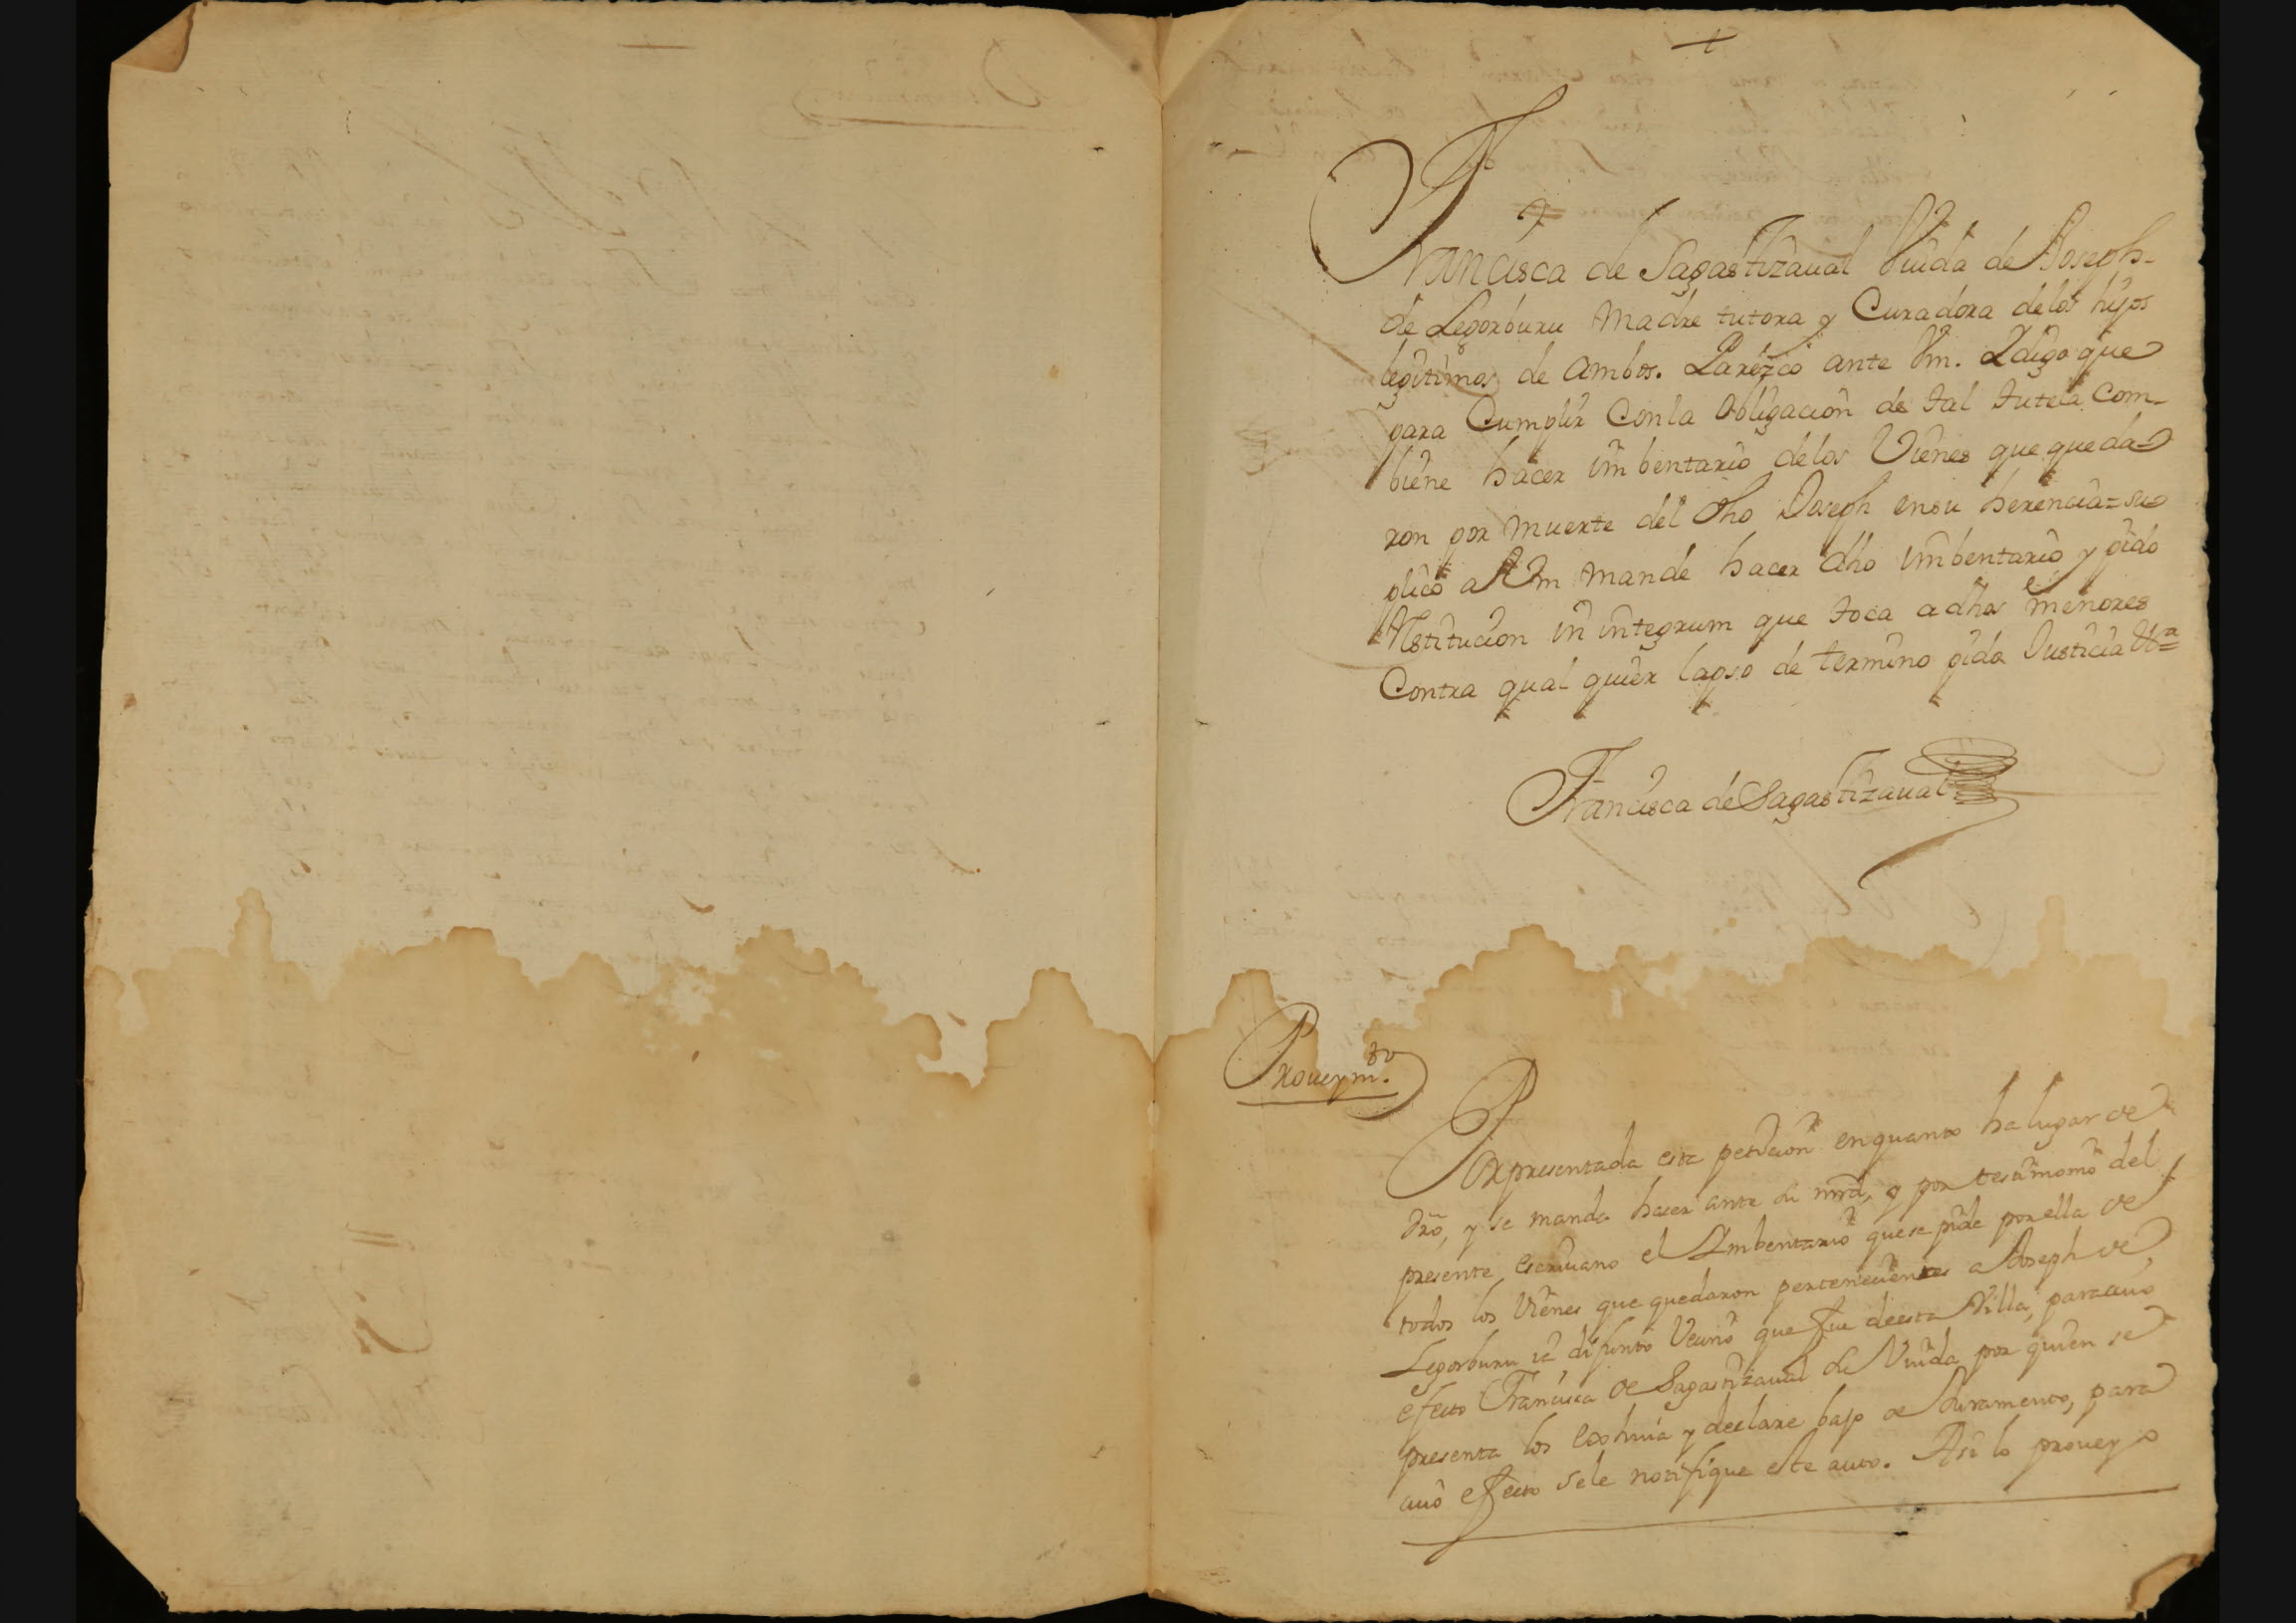 Francisca de Sagastizaual Viuda de Joseph
de Legorburu Madre tutora y Curadora delos hijos
legitimos de ambos. Parezco ante Vm. Y digo que
para Cumplir Conla Obligacion de tal tutela Com-
biene hacer imbentario delos Vienes que queda
ron por muerte del dho Joseph ensu herencia = su
plico a Vm mande hacer dho imbentario y pido
Restitucion in integrum que toca a dhos menores
Contra qual quier lapso de termino pido Justicia Vª=
Francisca de Sagastizaual
Proueymto.
Por presentada esta peticion en quanto ha lugar de
dro, y se manda hacer ante su mrd, y por testimonio del
presente escriuano el Imbentario quese pide por ella de
todos los Vienes que quedaron pertenecientes a Joseph de
Legorburu ia difunto Vecino que fue deesta Villa, para cuio
efecto Francisca de Sagastizaual su Viuda por quien se
presenta los exhiuia y declare bajo de Juramento, para
cuio efecto sele notifique este auto. Asi lo proueyo